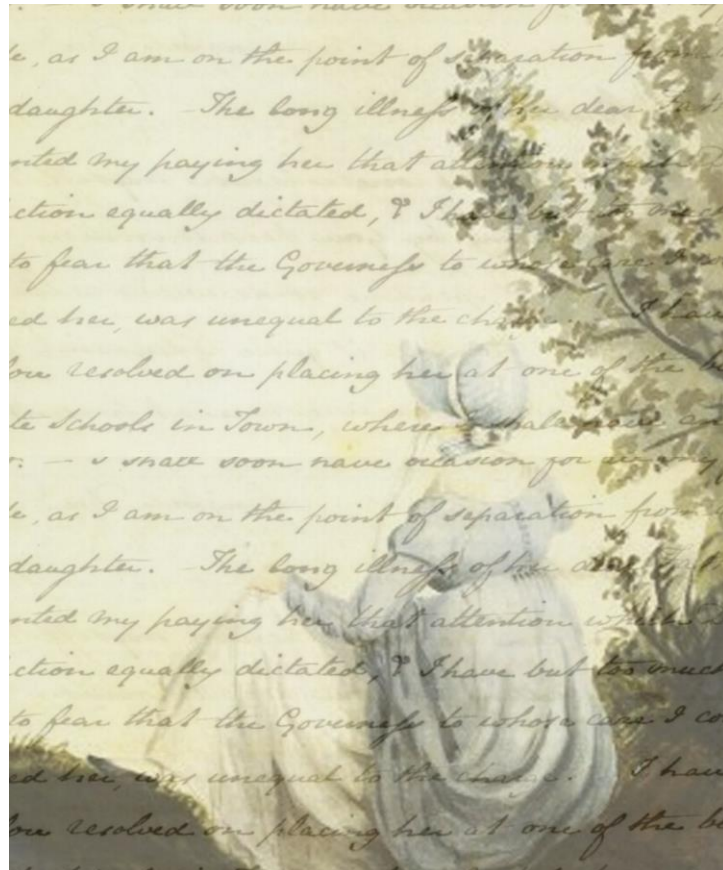 . — I shall soon have occasion for
e, as I am on the point of separation from
daughter. The long illness of her dear
nted my paying her that attention which
ction equally dictated, & I have but too much
to fear that the Governess to whose care I co
ed her, was unequal to the charge. I have
low resolved on placing her at one of the be
te Schools in Town, where I shall have an
r. — I shall soon have occasion for
e, as I am on the point of separation from
daughter. The long illness of her dear
nted my paying her that attention which
ction equally dictated, & I have but too much
to fear that the Governess to whose care I co
ed her, was unequal to the charge. I have
low resolved on placing her at one of the be